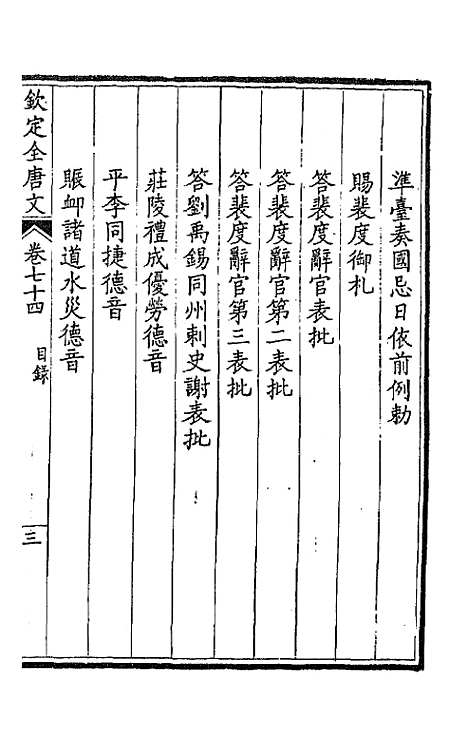 準臺奏國忌日依前例勅
賜裴度御札
答裴度辭官表批
答裴度辭官第二表批
答裴度辭官第三表批
答劉禹錫同州刺史謝表批
莊陵禮成優勞德音
平李同捷德音
賑卹諸道水災德音
欽定全唐文 卷七十四 目錄 三